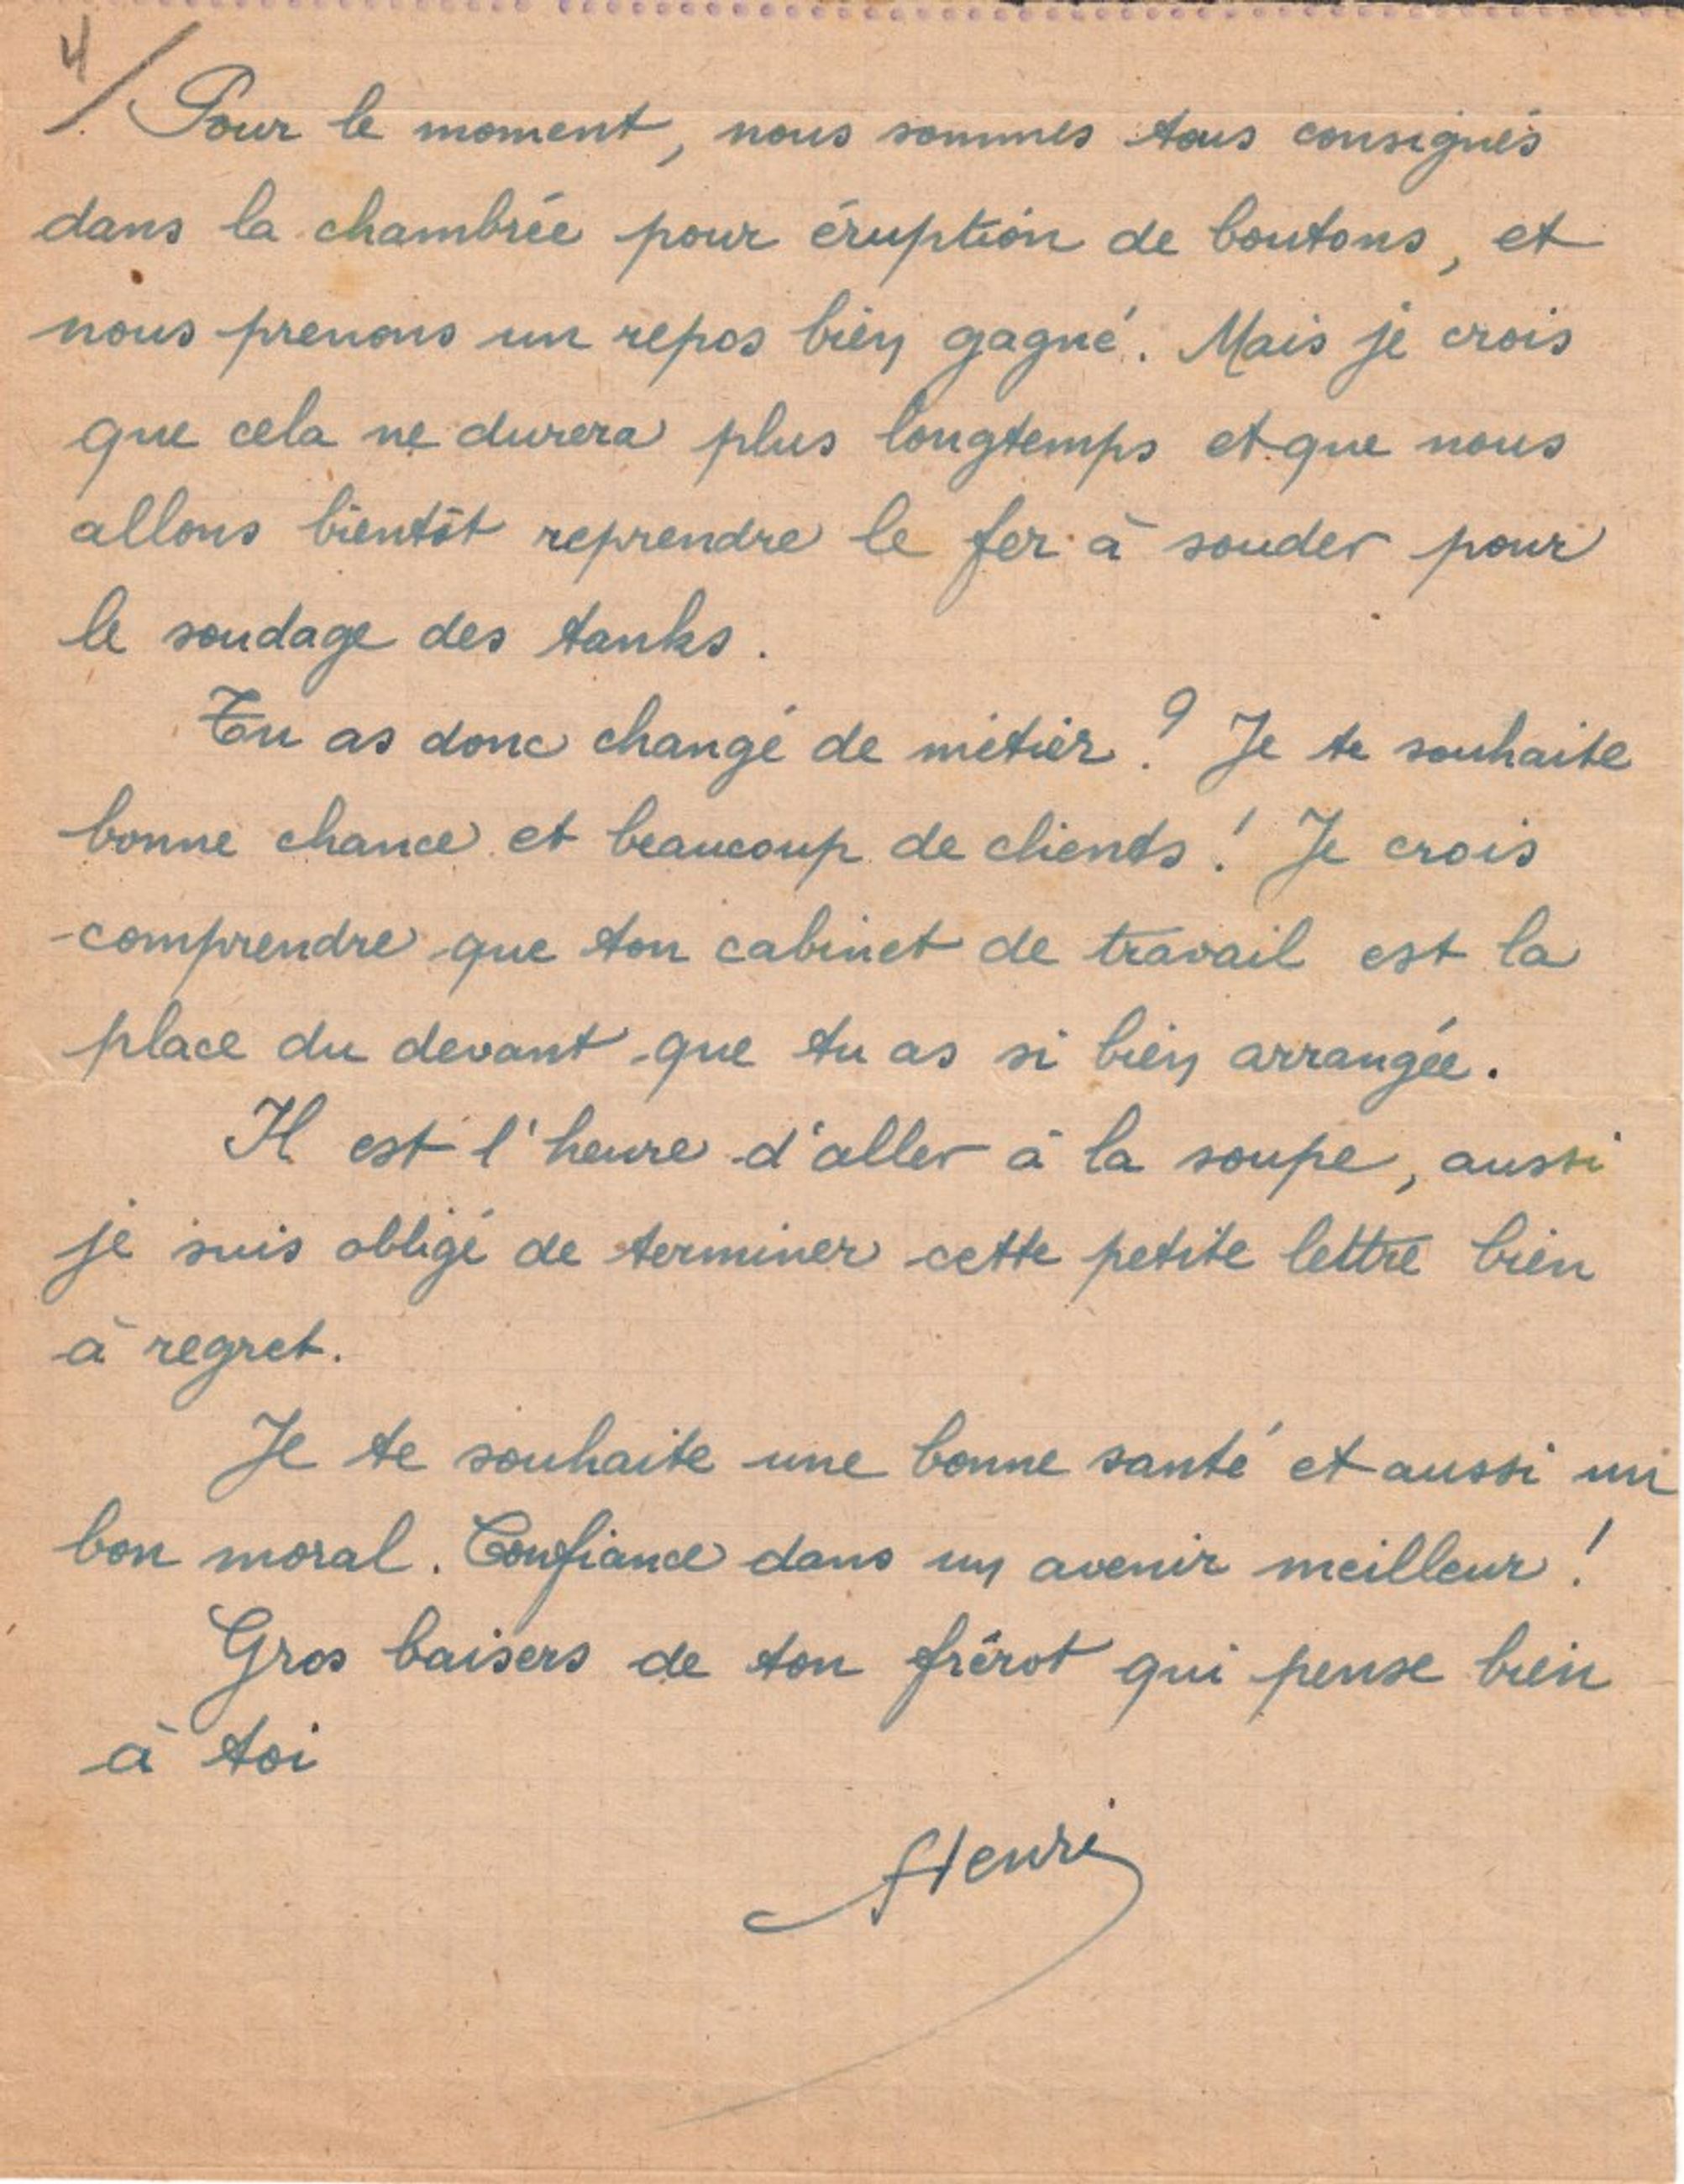 4/ Pour le moment, nous sommes tous consignés
dans la chambrée pour éruption de boutons, et
nous prenons un repos bien gagné. Mais je crois
que cela ne durera plus longtemps et que nous
allons bientôt reprendre le fer à souder pour
le soudage des tanks.
Tu as donc changé de métier ? Je te souhaite
bonne chance et beaucoup de clients ! Je crois
comprendre que ton cabinet de travail est la
place du devant que tu as si bien arrangée.
Il est l'heure d'aller à la soupe, aussi
je suis obligé de terminer cette petite lettre bien
à regret.
Je te souhaite une bonne santé et aussi un
bon moral. Confiance dans un avenir meilleur !
Gros baisers de ton frérot qui pense bien
à toi
Henri